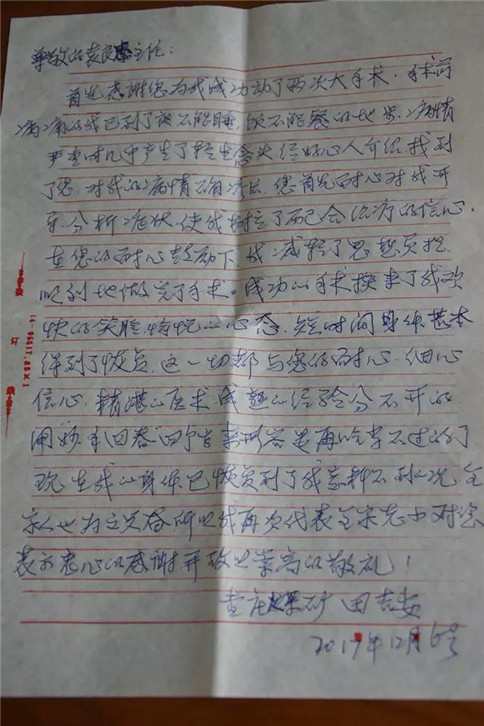 尊敬的袁良主任：
首先感谢您为我成功动了两次大手术，手术前
病痛的我已到了夜不能睡，饮不能餐的地界，病情
严重时几乎产生了轻生念头 经好心人介绍我到
了您 对我的病情了解后，您首先耐心对我开
导 分析症状，使我树立了配合治疗的信心，
在您的耐心鼓励下 我减轻了思想负担
顺利地做完了手术。成功的手术换来了我欢
快的笑脸 愉悦的心态，短时间身体基本
得到了恢复，这一切都与您的耐心，细心
信心，精湛的医术 成熟的经验分不开的
用妙手回春四字来形容是再恰当不过的了
现在我的身体已恢复到了我意料不到的况 全
家人也为之兴奋 所以我再次代表全家老少对您
表示衷心的感谢 并致以崇高的敬礼！
煤矿 田
2017年12月6号